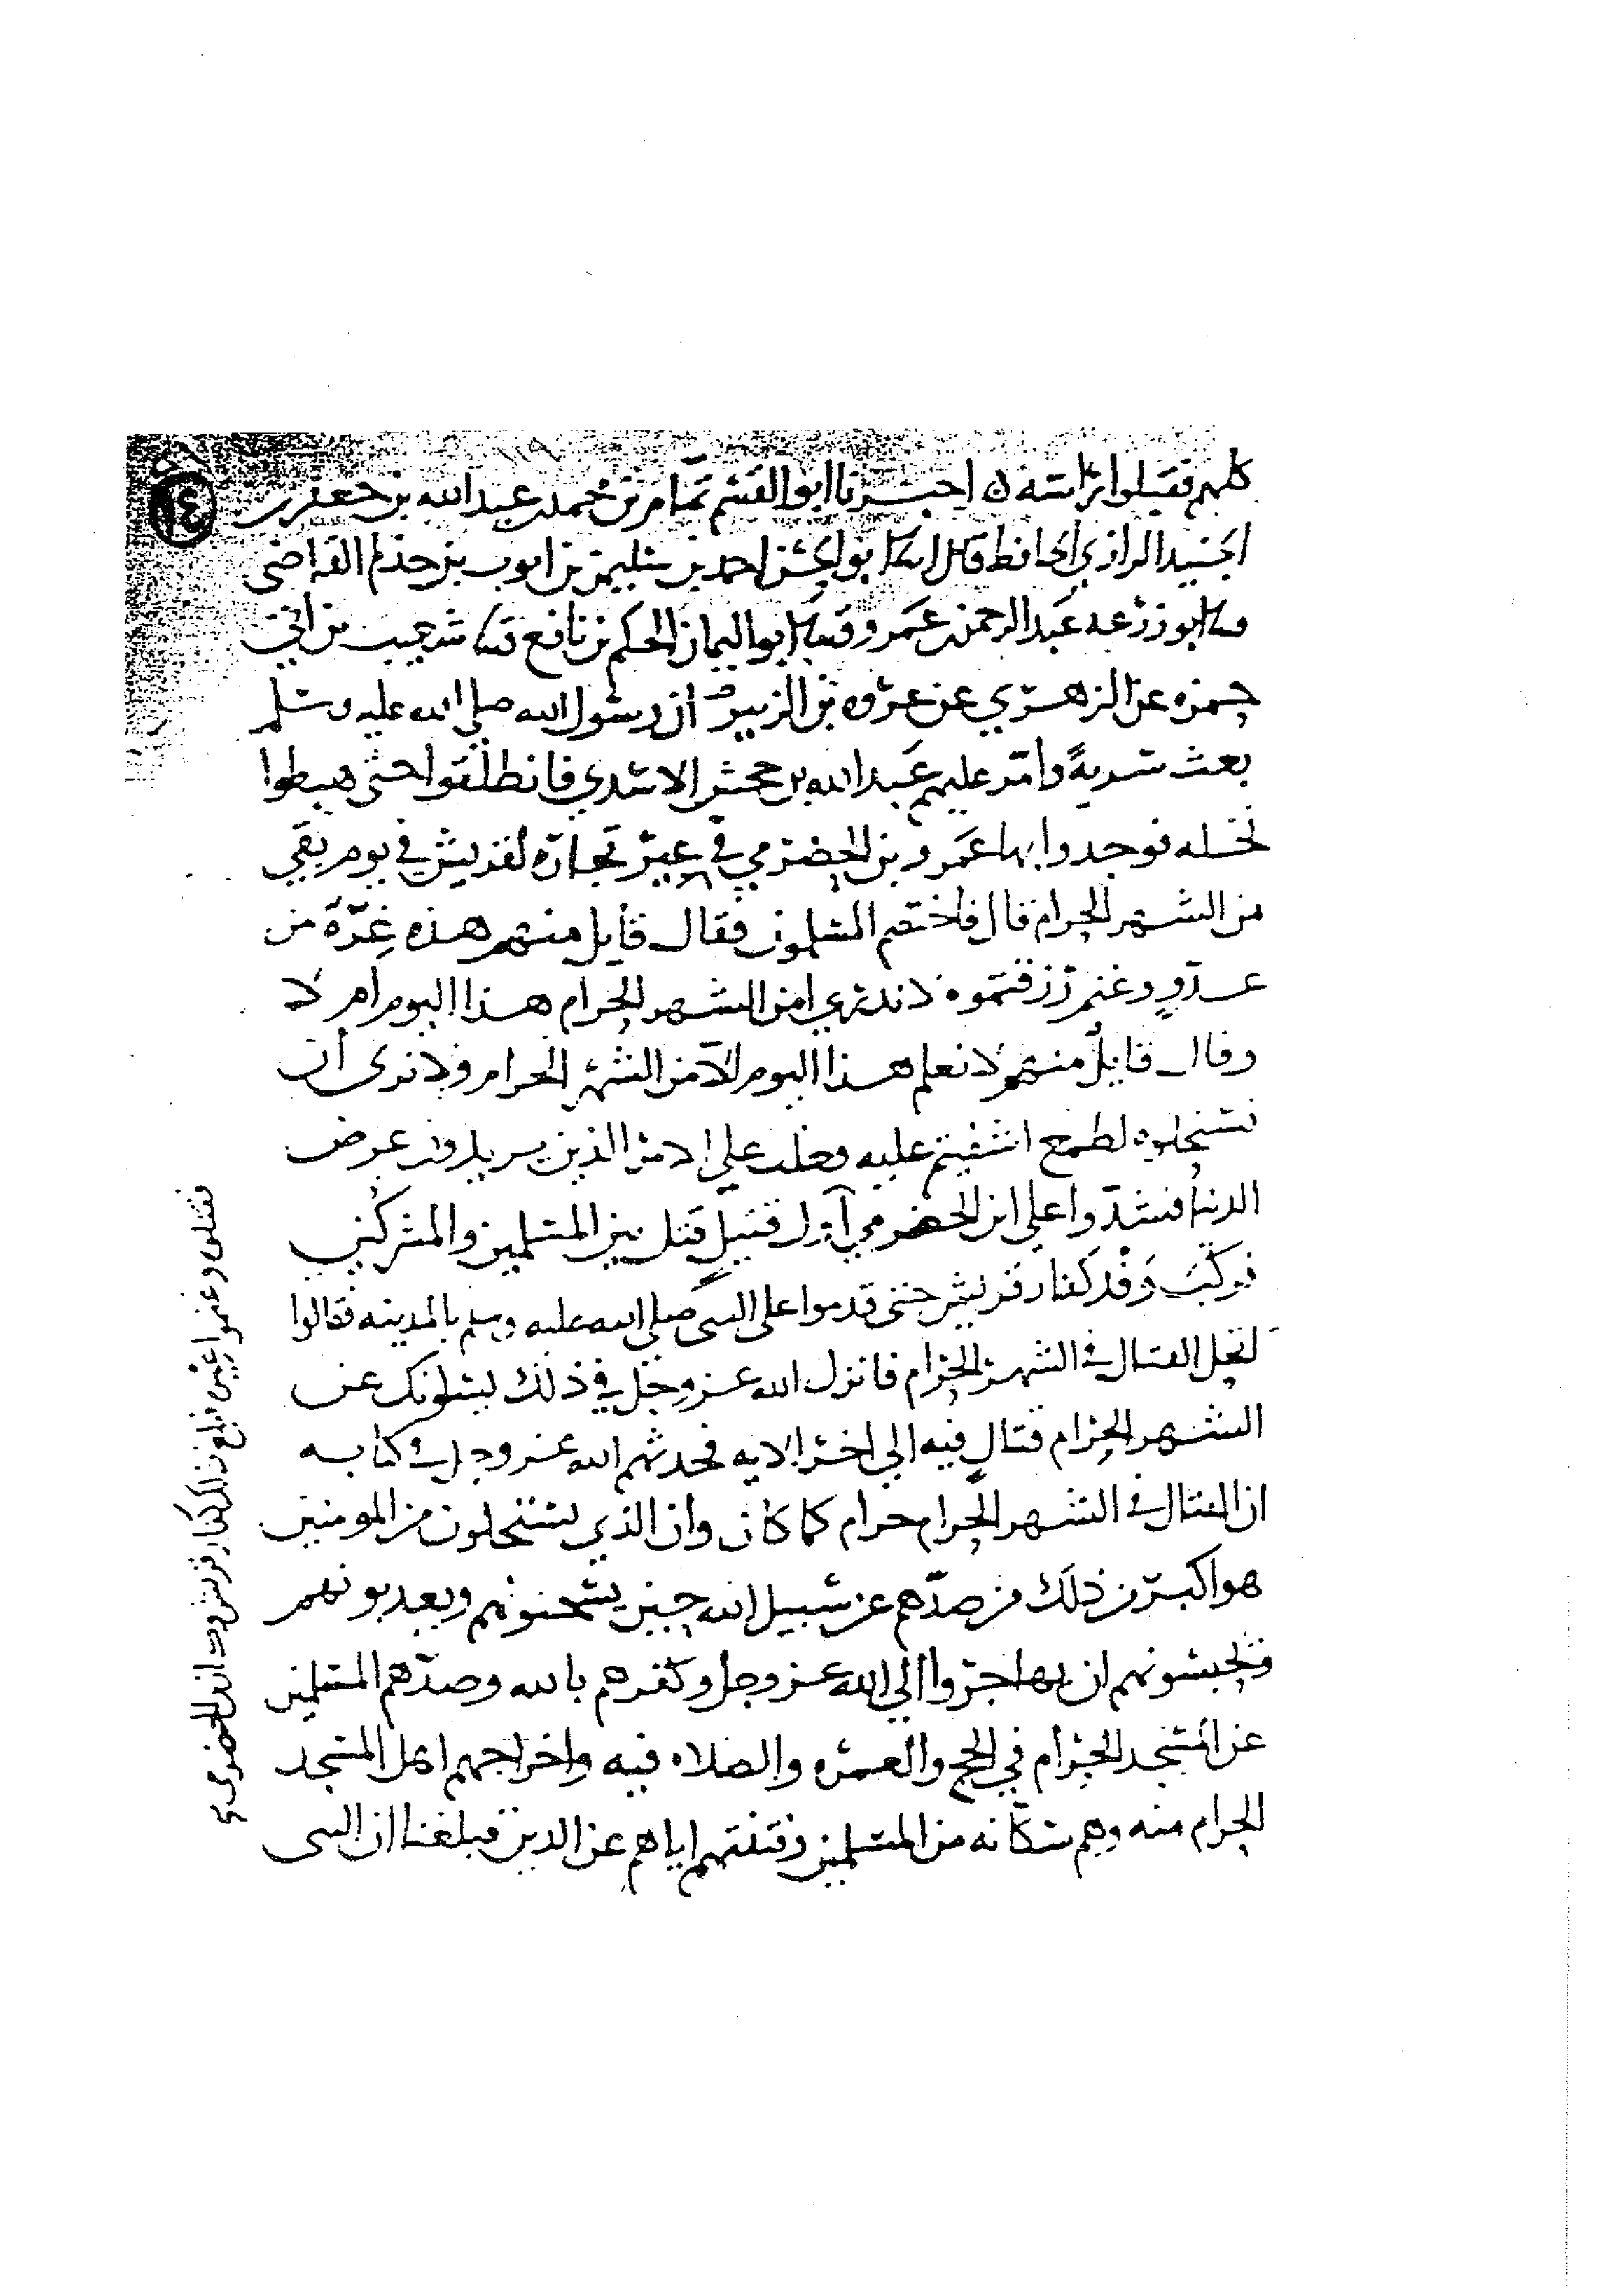 كلهم فقبلوا راسه ه اخبرنا ابو القسم تمام بن محمد بن عبد الله بن جعفر بن
الجنيد الرازي الحافظ قال ابو الحسن احمد بن سليمن بن ايوب بن حذلم القاضي
ابو زرعه عبد الرحمن بن عمرو ابو اليمان الحكم بن نافع شعيب بن ابي
حمزه عن الزهري عن عروه بن الزبير ان رسول الله صلى الله عليه وسلم
بعث سريةً وامّر عليهم عبد الله بن جحش الاسدي فانطلقوا حتى هبطوا
نخله فوجدوا بها عمرو بن الحضرمي في عير تجارة لقريش في يوم بقي
من الشهر الحرام قال فاختصم المسلمون فقال قايل منهم هذه غِرّة من
عدوٍ وغنم رزقتموه لا ندري امن الشهر الحرام هذا اليوم ام لا
وقال قايل منهم لا نعلم هذا اليوم الا من الشهر الحرام ولا نرى أن
تستحلوه لطمع اشفيتم عليه فغلب على الامر الذين يريدون عرض
الدنيا فشدّوا على ابن الحضرمي أول قتيلٍ قتل بين المسلمين والمشركين
فركب وفد كفار قريش حتى قدموا على النبي صلى الله عليه وسلم بالمدينه فقالوا
اتحل القتال في الشهر الحرام فانزل الله عز وجل في ذلك يسلونك عن
الشهر الحرام قتالٍ فيه الى اخر الايه فحدثهم الله عز وجل في كتابه
ان القتال في الشهر الحرام حرام كما كان وان الذي يستحلون من المومنين
هو اكبر من ذلك من صدّهم عن سبيل الله حين يسجنونهم ويعذبونهم
ويحبسونهم ان يهاجروا الى الله عز وجل وكفرهم بالله وصدّهم المسلمين
عن المسجد الحرام في الحج والعمره والصلاه فيه واخراجهم اهل المسجد
الحرام منه وهم سكانه من المسلمين وفتنتهم اياهم عن الدين فبلغنا ان النبي
فقتلوه وغنموا عيره فبلغ ذلك كفار قريش وكان ابن الحضرمي
١٤
١١٩